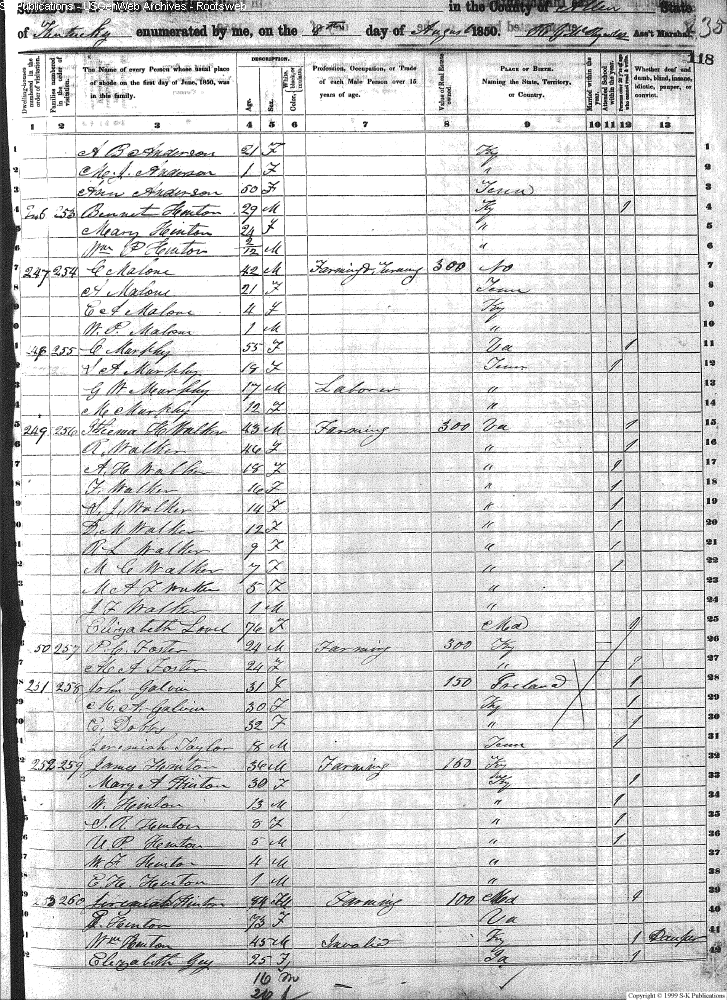 S Publications - USGenWeb Archives - Rootsweb
in the County of Allen State
of Kentucky enumerated by me, on the 8th day of August 1850. Ass't Marshal. 35
118
Dwelling-houses numbered in the order of visitation.
Families numbered in the order of visitation.
The Name of every Person whose usual place of abode on the first day of June, 1850, was in this family.
DESCRIPTION.
Age.
Sex.
Color, White, black, or mulatto.
Profession, Occupation, or Trade of each Male Person over 15 years of age.
Value of Real Estate owned.
PLACE OF BIRTH.
Naming the State, Territory, or Country.
Married within the year.
Attended School within the year.
Whether deaf and dumb, blind, insane, idiotic, pauper, or convict.
1 2 3 4 5 6 7 8 9 10 11 12 13
1 A B Anderson 21 F Ky
2 M. J. Anderson 1 F "
3 Ann Anderson 50 F Tenn
4 246 253 Bennet Hinton 29 M Ky 1
5 Mary Hinton 24 F "
6 Wm P Hinton 2/12 M "
7 247 254 C Malone 42 M Farming & 300 No
8 Malone 21 F Tenn
9 E A Malone 4 F Ky
10 W. P. Malone 1 M "
11 48 255 C Murphy 55 F Va 1
12 S A Murphy 18 F Tenn 1
13 G W Murphy 17 M Laborer "
14 M Murphy 12 F "
15 249 256 H Walker 43 M Farming 300 Va 1
16 R. Walker 46 F " 1
17 A. H Walker 18 F " 1
18 F. Walker 16 F " 1
19 S. J. Walker 14 F " 1
20 D. M Walker 12 F " 1
21 R L Walker 9 F " 1
22 M C Walker 7 F " 1
23 M A F Walker 5 F "
24 J F Walker 1 M "
25 Elizabeth Lovel 76 F Md 1
26 50 257 P. C. Foster 24 M Farming 300 Ky
27 A Foster 24 F " 1
28 251 258 John Galvin 31 150 Ireland 1
29 M. A. Galvin 30 F Ky 1
30 C. Dobbs 32 F " 1
31 Jeremiah Taylor 8 M Tenn 1
32 252 259 James Hinton 34 M Farming 160 Ky
33 Mary A Hinton 30 F Ky 1
34 W. Hinton 13 M " 1
35 S. A. Hinton 8 F " 1
36 U P Hinton 5 M " 1
37 W F Hinton 4 M "
38 C H. Hinton 1 M "
39 253 260 Jeremiah Hinton 84 M Farming 100 Md 1
40 Hinton 73 F Va
41 Wm Hinton 45 M Invalid Ky 1 Pauper
42 Elizabeth Guy 25 F 1
16 m
Copyright © 1999 S-K Publications